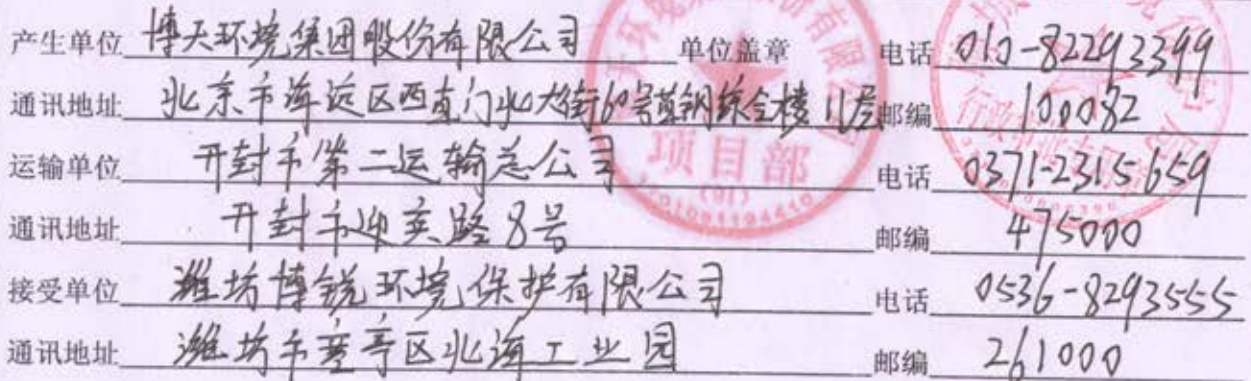 产生单位 博天环境集团股份有限公司 单位盖章 电话 010-82293399
通讯地址 北京市海淀区西直门北大街60号首钢综合楼11层 邮编 100082
运输单位 开封市第二运输总公司 电话 0371-2315659
通讯地址 开封市迎宾路8号 邮编 475000
接受单位 潍坊博锐环境保护有限公司 电话 0536-8293555
通讯地址 潍坊市寒亭区北海工业园 邮编 261000
项目部
(01)